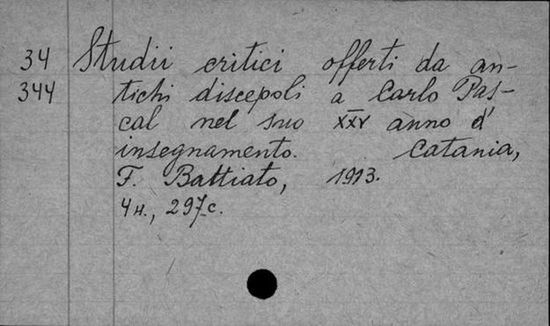 34 Studii critici offerti da an-
344 tichi discepoli a Carlo Pas-
cal nel suo XXV anno d'
insegnamento. Catania,
F. Battiato, 1913.
4н., 297с.